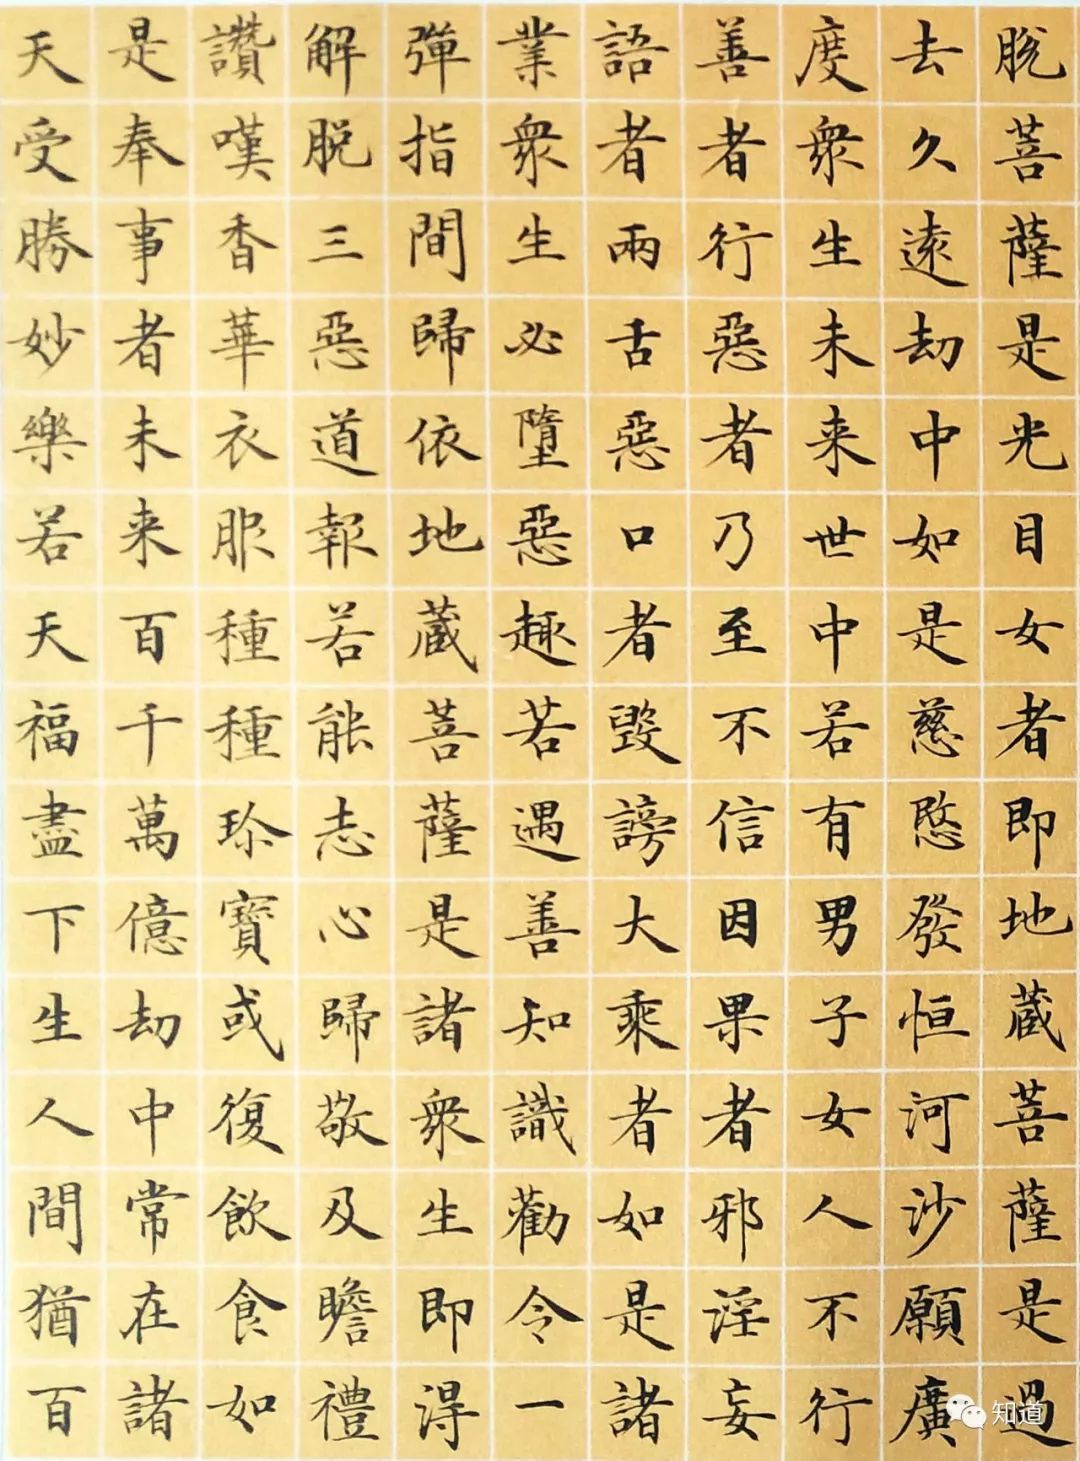 脫菩薩是光目女者即地藏菩薩是過
去久遠劫中如是慈愍發恒河沙願廣
度衆生未来世中若有男子女人不行
善者行惡者乃至不信因果者邪淫妄
語者兩舌惡口者毀謗大乘者如是諸
業衆生必墮惡趣若遇善知識勸令一
彈指間歸依地藏菩薩是諸衆生即得
解脫三惡道報若能志心歸敬及瞻禮
讚嘆香華衣服種種珎寶或復飲食如
是奉事者未来百千萬億劫中常在諸
天受勝妙樂若天福盡下生人間猶百
知道